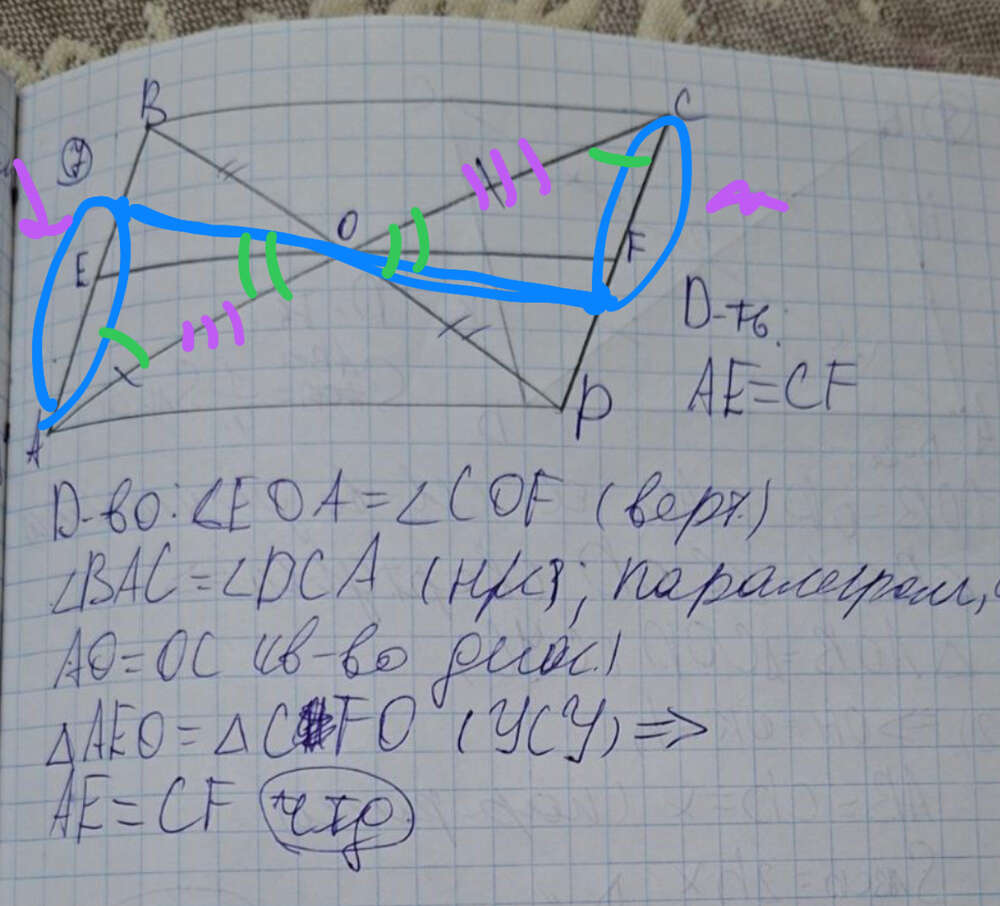 B
C
7
O
E
F
D-ть:
AE=CF
A
D
D-во: ∠EOA=∠COF (верт.)
∠BAC=∠DCA (н/л); паралелграм,
AO=OC (св-во диаг.)
△AEO=△CFO (УСУ) =>
AE=CF чтд